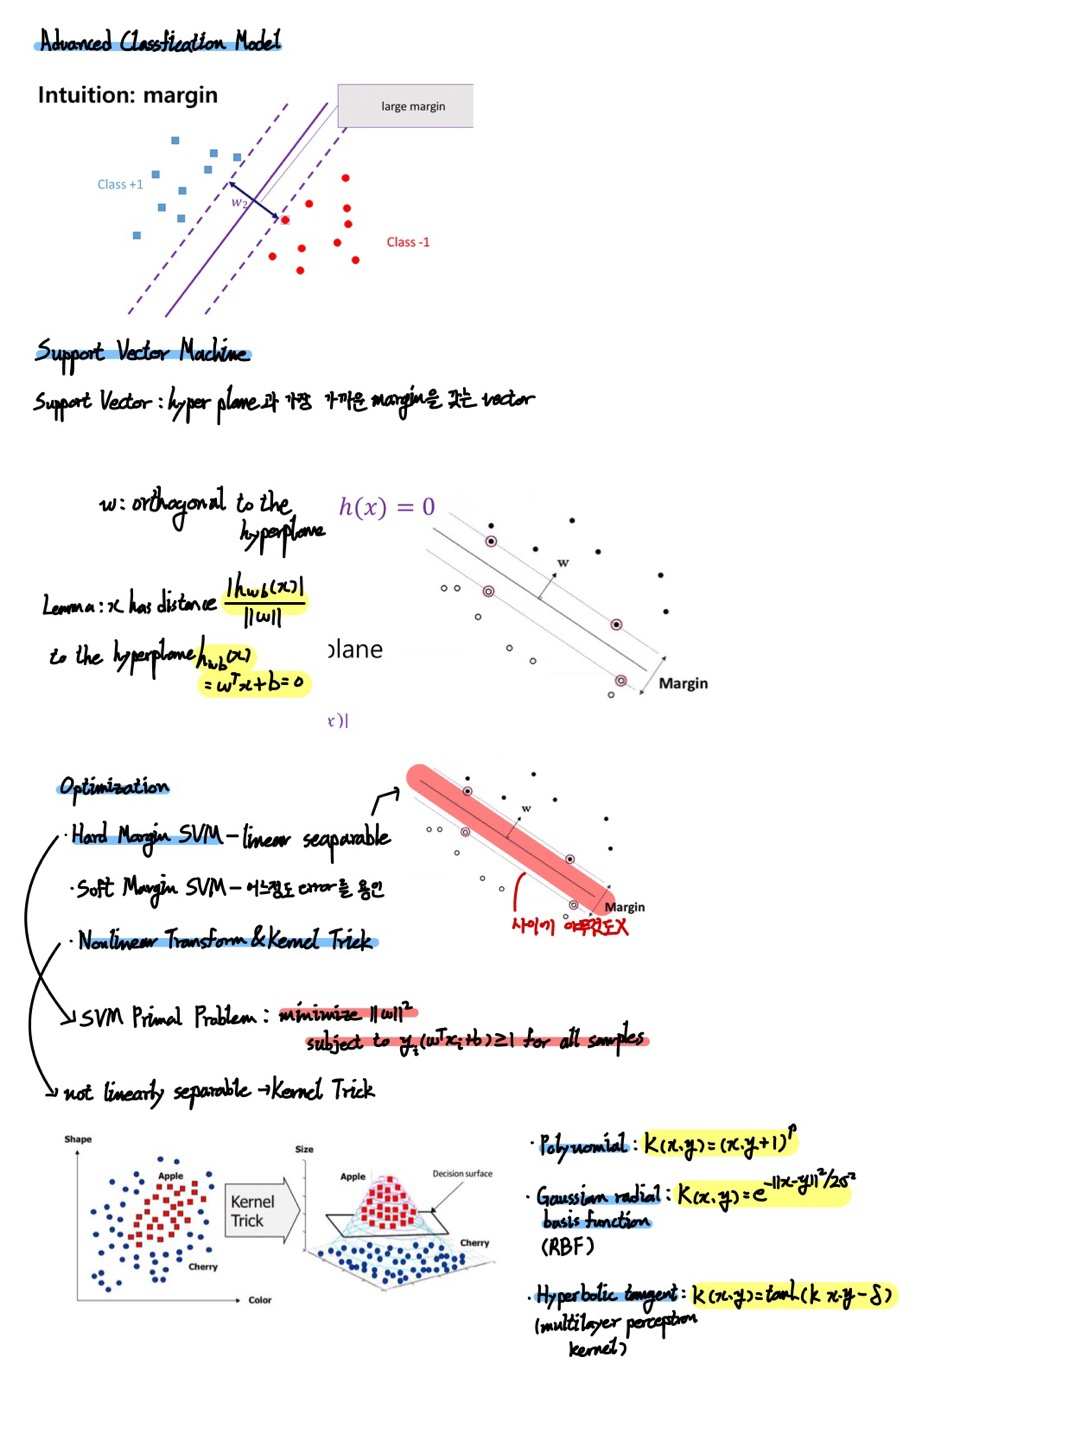 Advanced Classfication Model
Intuition: margin
large margin
Class +1
w₂
Class -1
Support Vector Machine
Support Vector : hyper plane과 가장 가까운 margin을 갖는 vector
w: orthogonal to the
hyperplane
h(x) = 0
w
Lemma: x has distance |h_wb(x)| / ||w||
to the hyperplane h_wb(x)
= wᵀx+b=0
plane
Margin
x)|
Optimization
· Hard Margin SVM - linear seaparable
w
· Soft Margin SVM - 어느정도 error를 용인
Margin
사이에 아무것도X
· Nonlinear Transform & Kernel Trick
SVM Primal Problem : minimize ||w||²
subject to yᵢ(wᵀxᵢ+b)≥1 for all samples
not linearly separable → Kernel Trick
Shape
Apple
Cherry
Color
Kernel
Trick
Size
Apple
Decision surface
Cherry
· Polynomial : K(x,y)=(x·y+1)^p
· Gaussian radial : K(x,y)=e^(-||x-y||²/2σ²)
basis function
(RBF)
· Hyperbolic tangent : K(x,y)=tanh(k x·y-δ)
(multilayer perception
kernel)